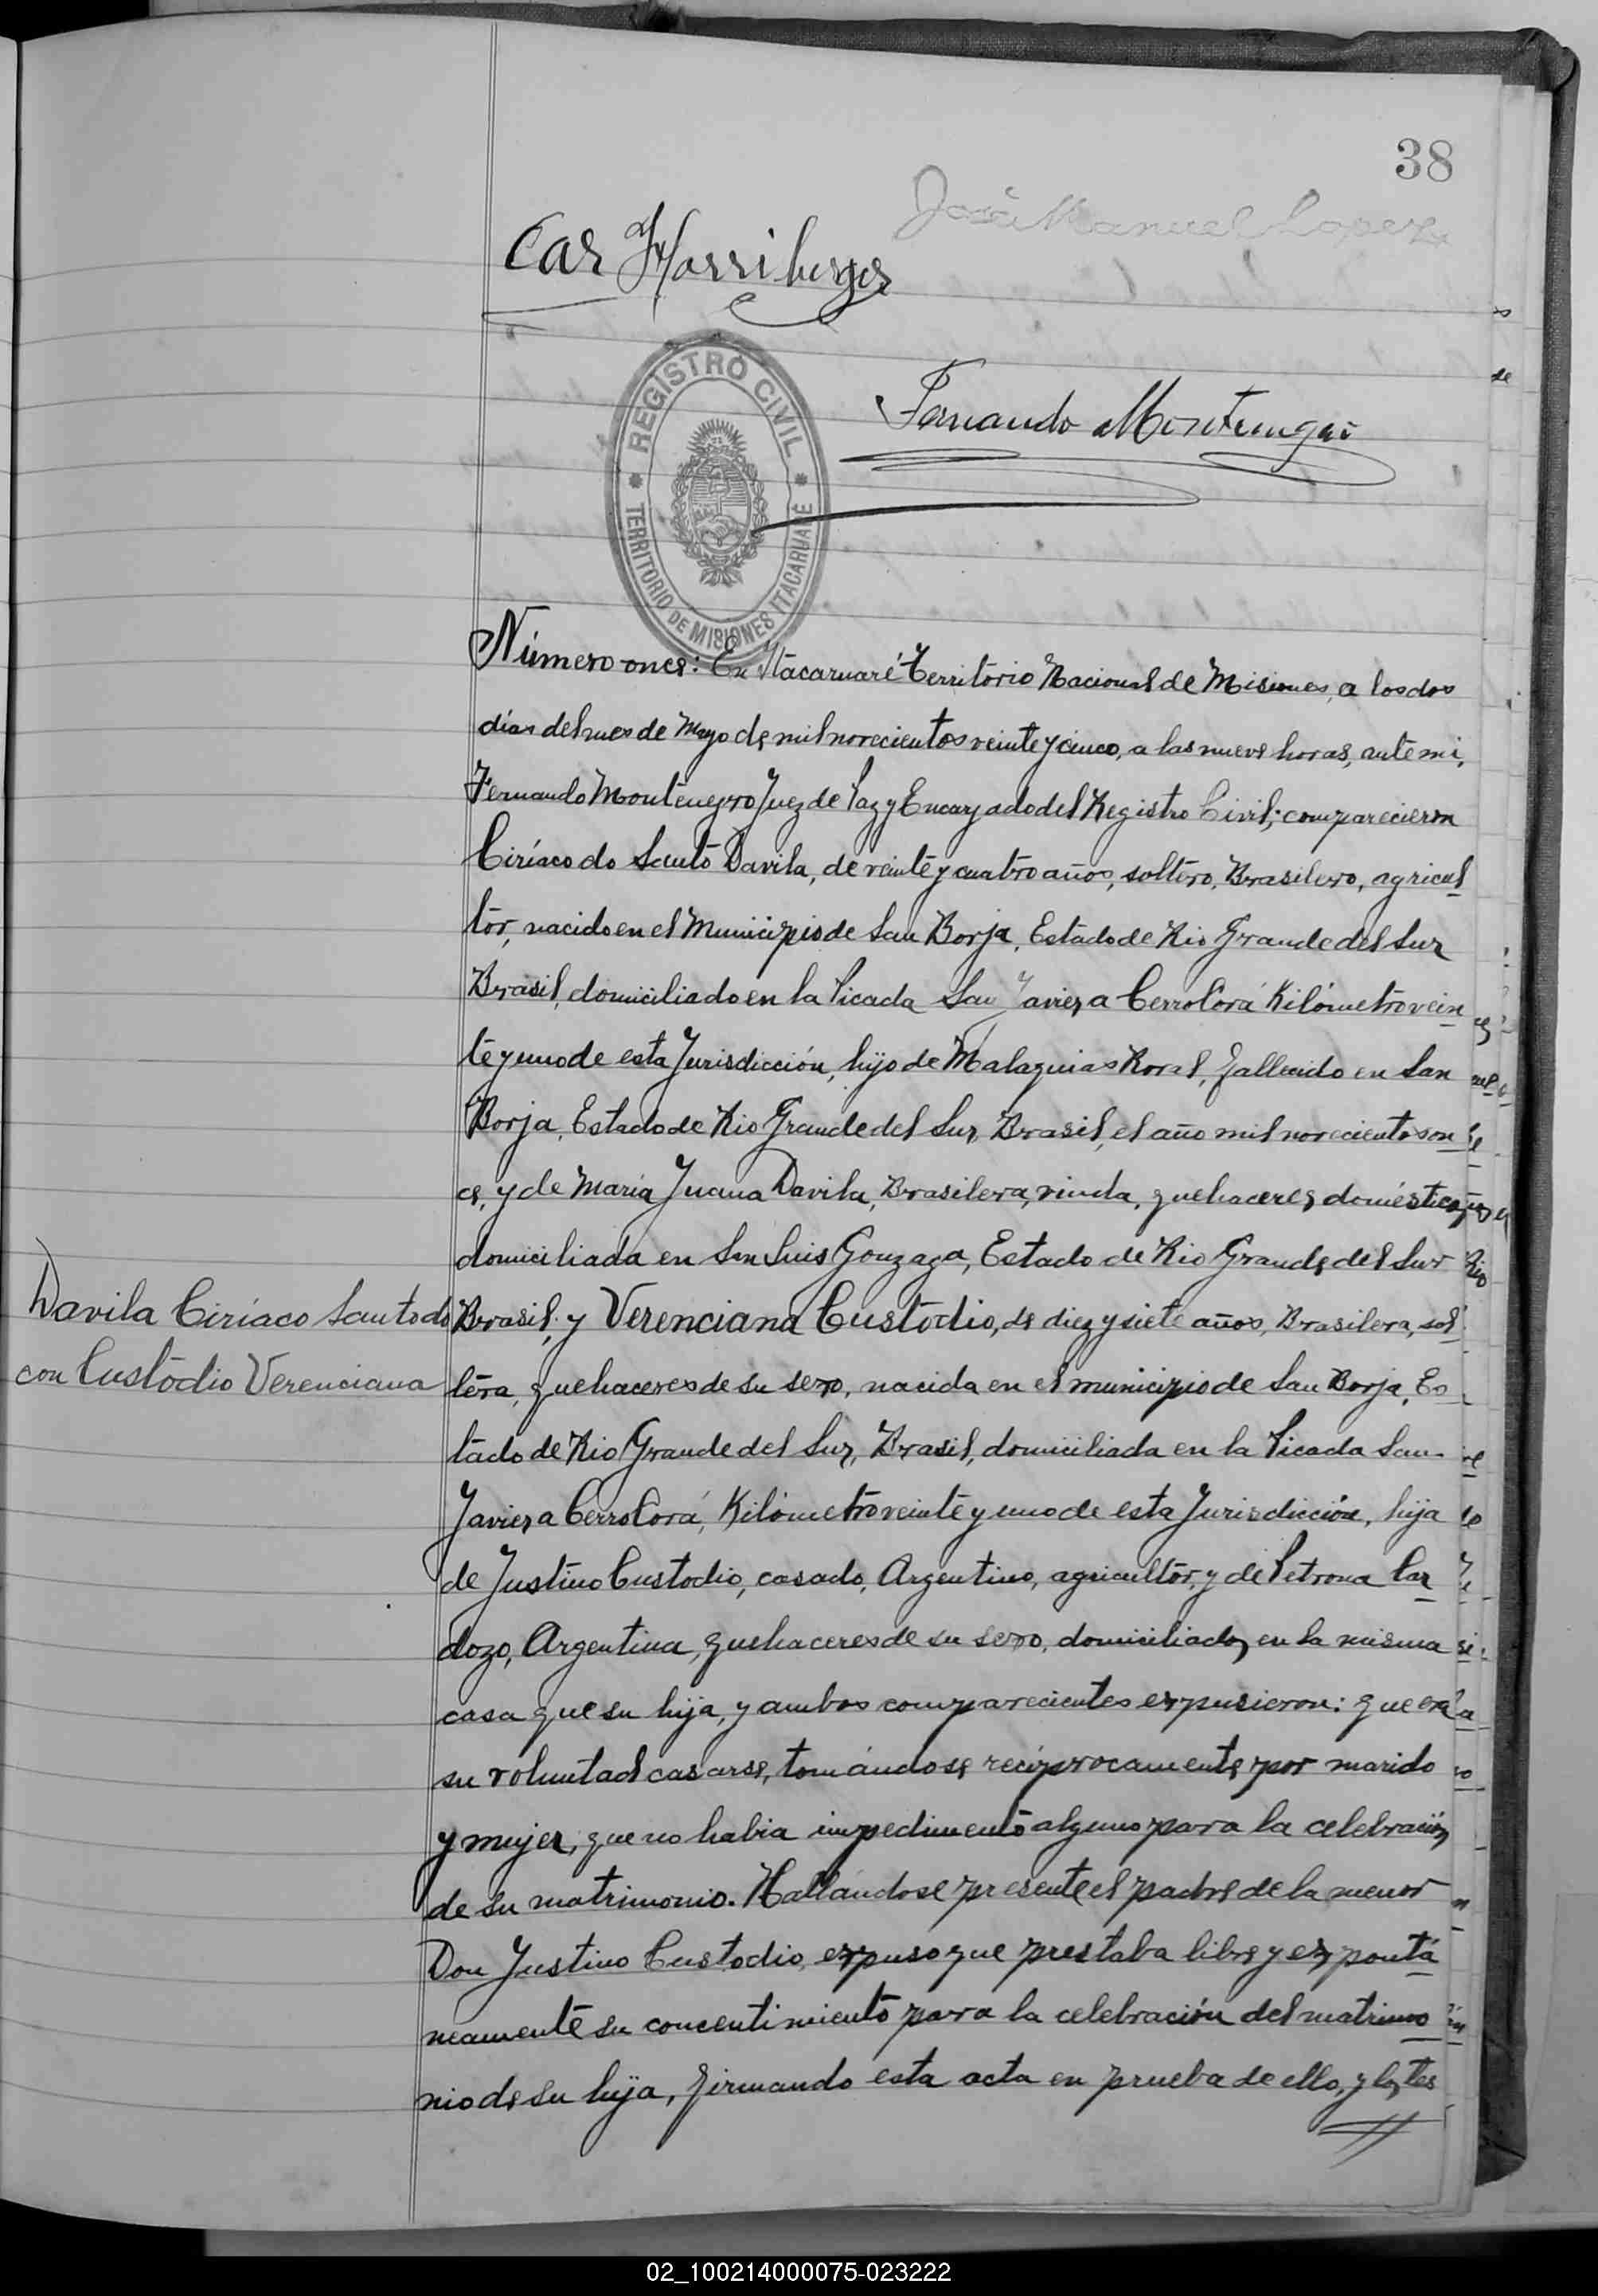 38
José Manuel Lopez
Car Horriberger
REGISTRO CIVIL
TERRITORIO DE MISIONES ITACARUARÉ
Fernando Montenegro
Número once: En Itacaruaré Territorio Nacional de Misiones, a los dos
días del mes de Mayo de mil novecientos veinte y cinco, a las nueve horas, ante mi,
Fernando Montenegro Juez de Paz y Encargado del Registro Civil; comparecieron
Ciríaco do Santo Davila, de veinte y cuatro años, soltero, Brasilero, agricul
tor, nacido en el Municipio de San Borja, Estado de Rio Grande del Sur
Brasil, domiciliado en la Picada San Javier a Cerro Corá Kilómetro vein
te y uno de esta Jurisdicción, hijo de Malaquias Roral, fallecido en San
Borja, Estado de Rio Grande del Sur, Brasil, el año mil novecientos on
ce, y de María Juana Davila, Brasilera, viuda, quehaceres domésticos,
domiciliada en San Luis Gonzaga, Estado de Rio Grande del Sur
Davila Ciríaco Santo do
con Custodio Verenciana
Brasil; y Verenciana Custodio, de diez y siete años, Brasilera, sol
tera, quehaceres de su sexo, nacida en el municipio de San Borja, Es
tado de Rio Grande del Sur, Brasil, domiciliada en la Picada San
Javier a Cerro Corá, Kilómetro veinte y uno de esta Jurisdicción, hija
de Justino Custodio, casado, Argentino, agricultor, y de Petrona Car
dozo, Argentina, quehaceres de su sexo, domiciliados en la misma
casa que su hija, y ambos comparecientes expusieron: que era
su voluntad casarse, tomándose recíprocamente por marido
y mujer, que no habia impedimento alguno para la celebración
de su matrimonio. Hallándose presente el padre de la menor
Don Justino Custodio, expuso que prestaba libre y espontá
neamente su concentimiento para la celebración del matrimo
nio de su hija, firmando esta acta en prueba de ello, y los tes
02_100214000075-023222